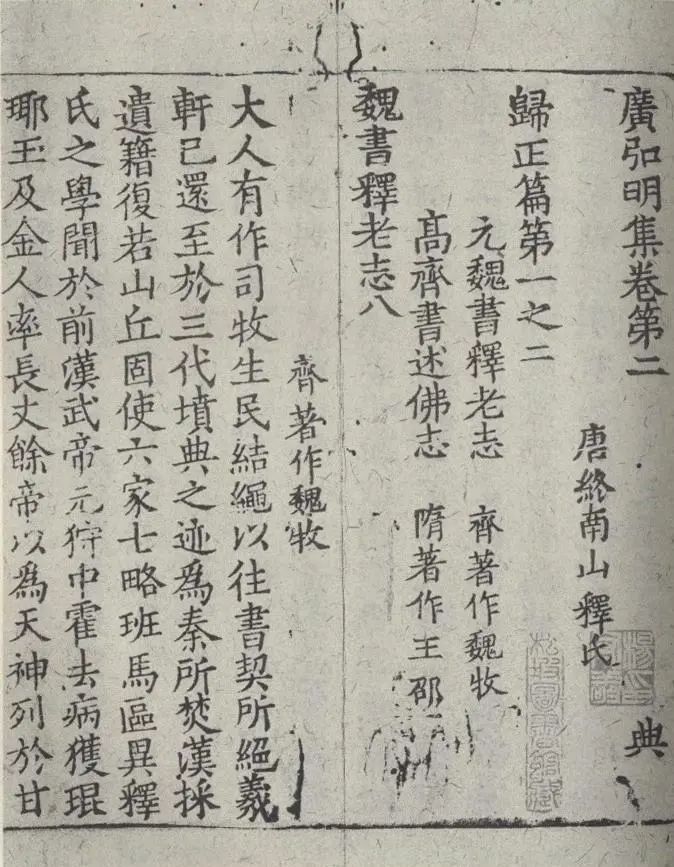 廣弘明集卷第二 典
唐終南山釋氏
歸正篇第一之二
元魏書釋老志 齊著作魏牧
高齊書述佛志 隋著作王邵
魏書釋老志八
齊著作魏牧
大人有作司牧生民結繩以往書契所絕羲
軒已還至於三代墳典之迹為秦所焚漢採
遺籍復若山丘固使六家七略班馬區異釋
氏之學聞於前漢武帝元狩中霍去病獲琨
耶王及金人率長丈餘帝以為天神列於甘